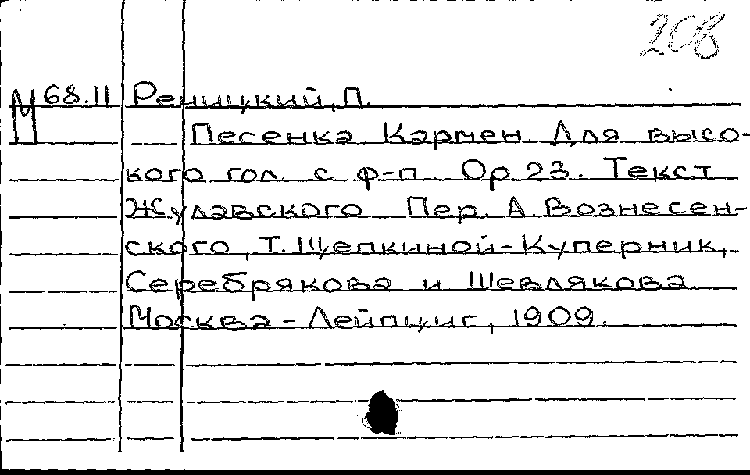 208
М 68.11 Реницкий, П.
Песенка Кармен Для высо-
кого гол. с ф-п. Op. 23. Текст
Жулавского Пер. А. Вознесен-
ского, Т. Щепкиной-Куперник,
Серебрякова и Шевлякова
Москва - Лейпциг, 1909.